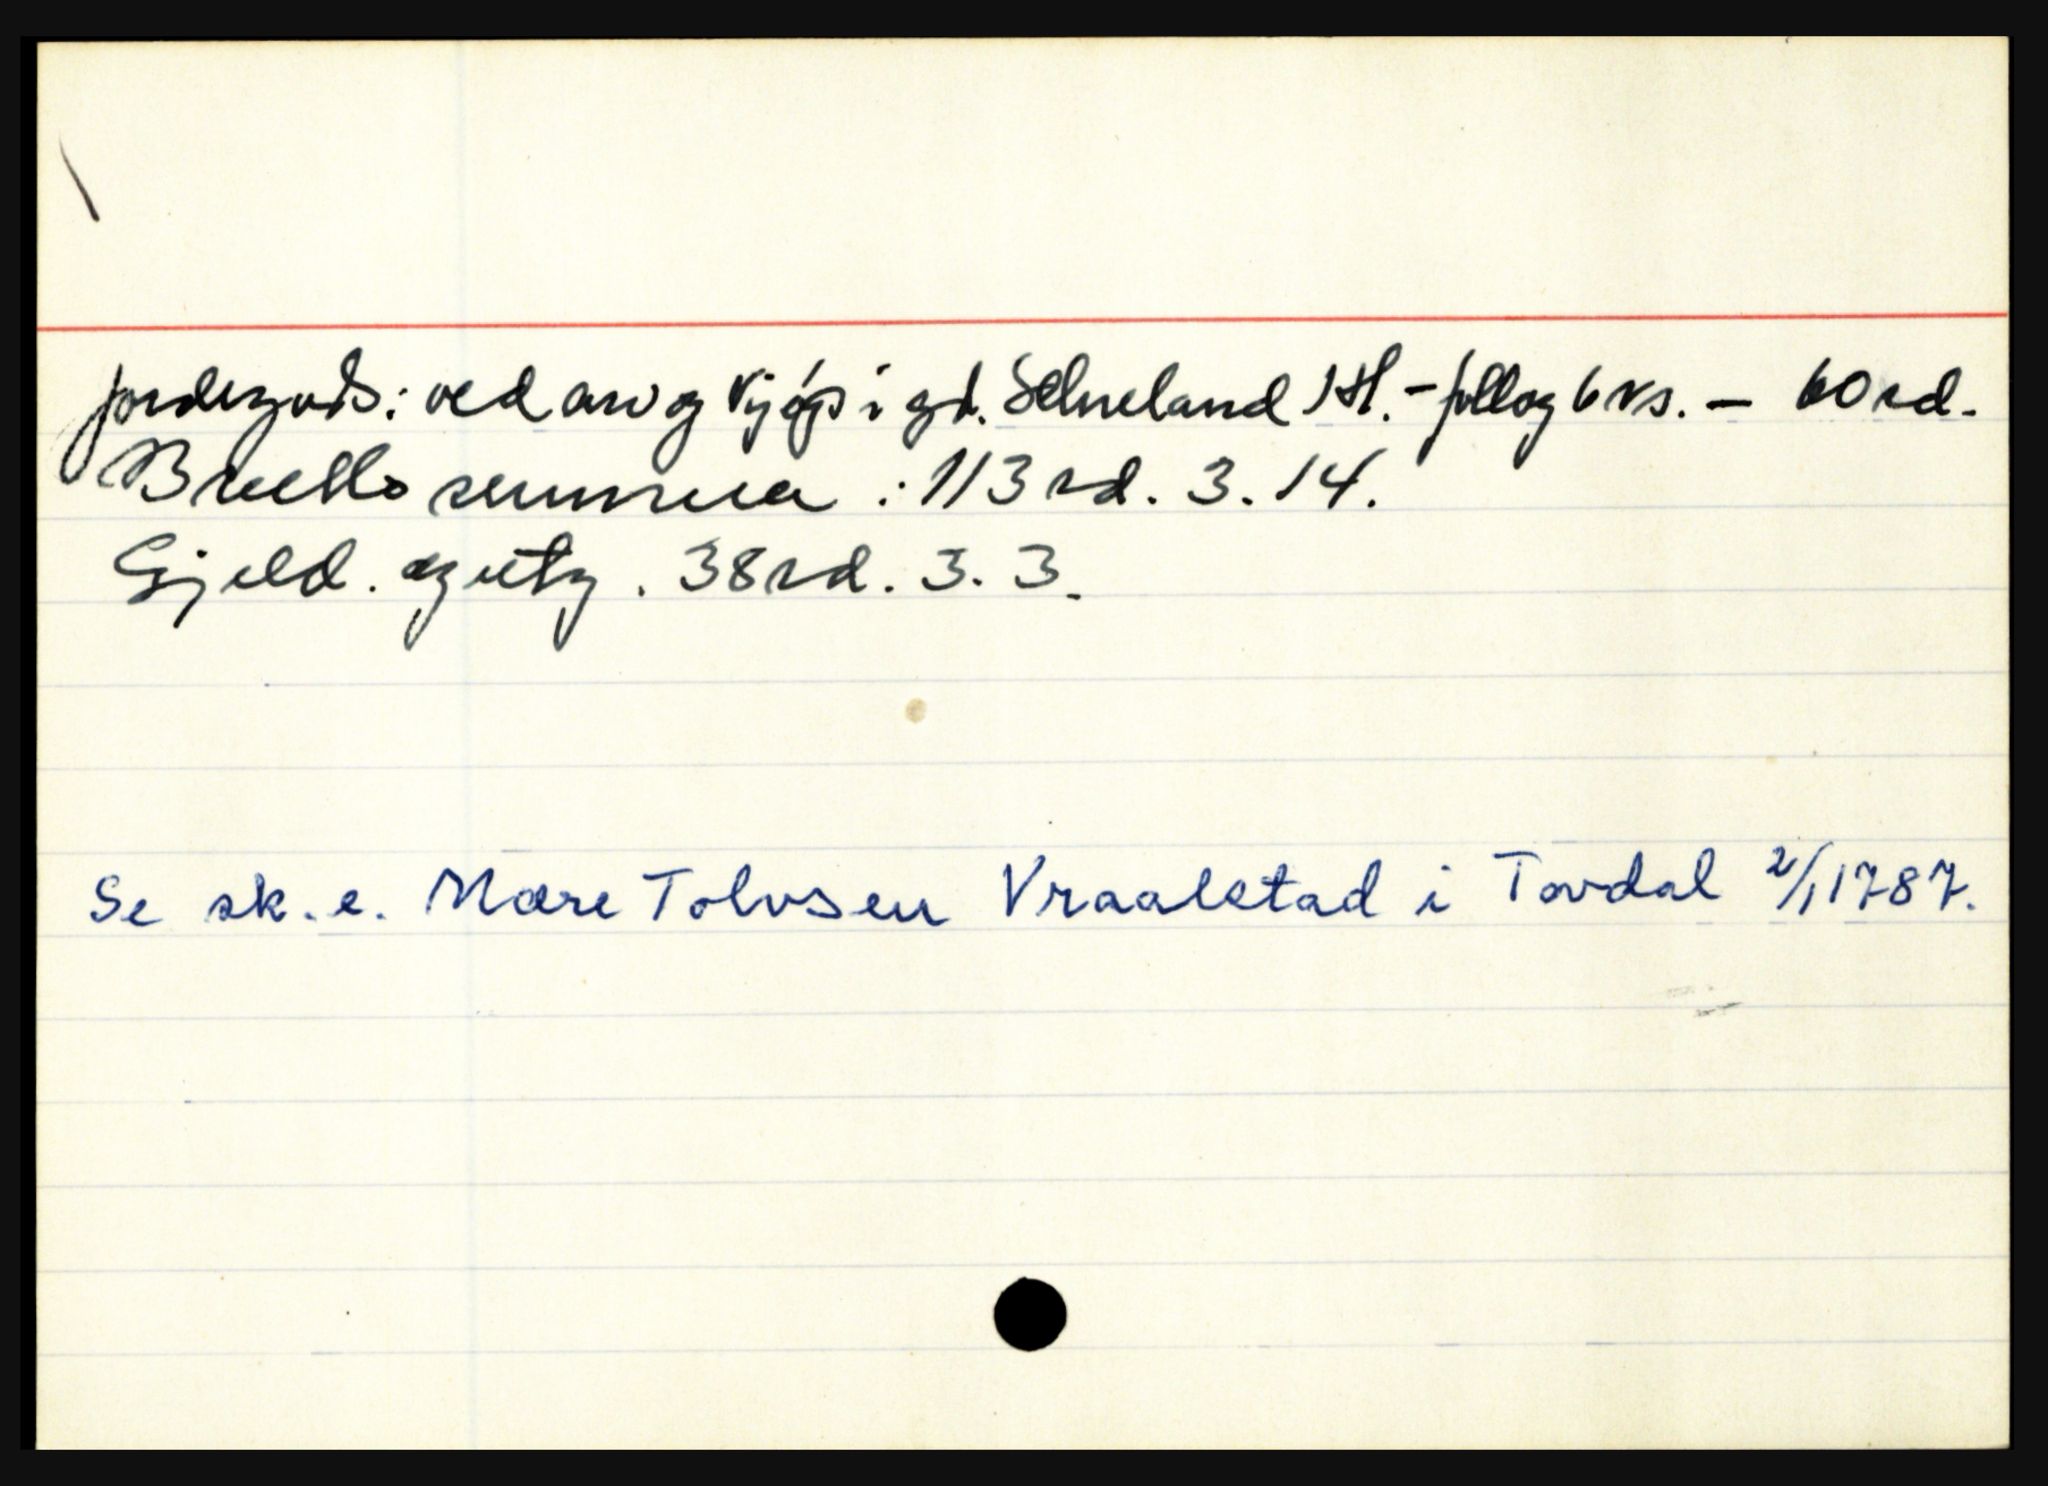 jordegods: ved arv og kjøp i gd. Selueland 1 H. - foll og 6 ks. - 60 rd.
Brutto summa : 113 rd. 3. 14.
Gjeld. og utg. 38 rd. 3. 3.
Se sk. e. Mære Tolvsen Vraalstad i Tovdal 2/1 1787.